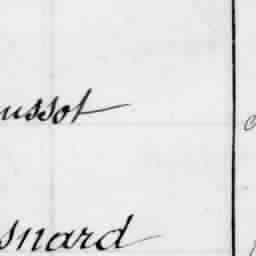 ussot
snard